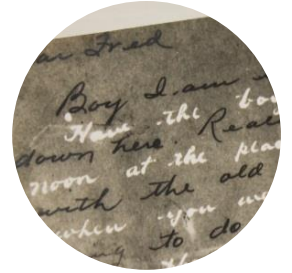 ar Fred
Boy I am
Have the bo
down here. Real
noon at the plac
with the old
when you we
ng to do